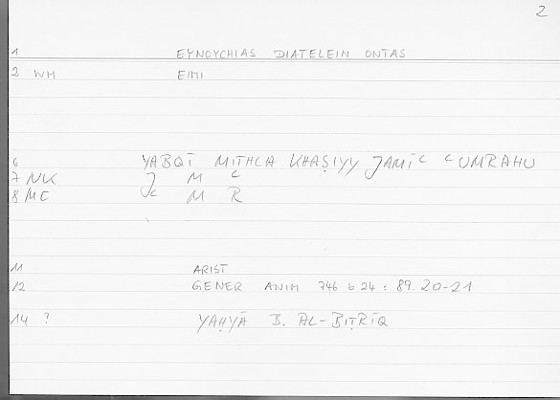 2
1 EYNOYCHIAS DIATELEIN ONTAS
2 WM EIMI
6 YABQĪ MITHLA KHAṢIYY JAMĪʿ ʿUMRAHU
7 NK J M ʿ
8 ME Jʿ M R
11 ARIST
12 GENER ANIM 746 b 24 : 89.20-21
14 ? YAḤYĀ B. AL-BIṬRĪQ